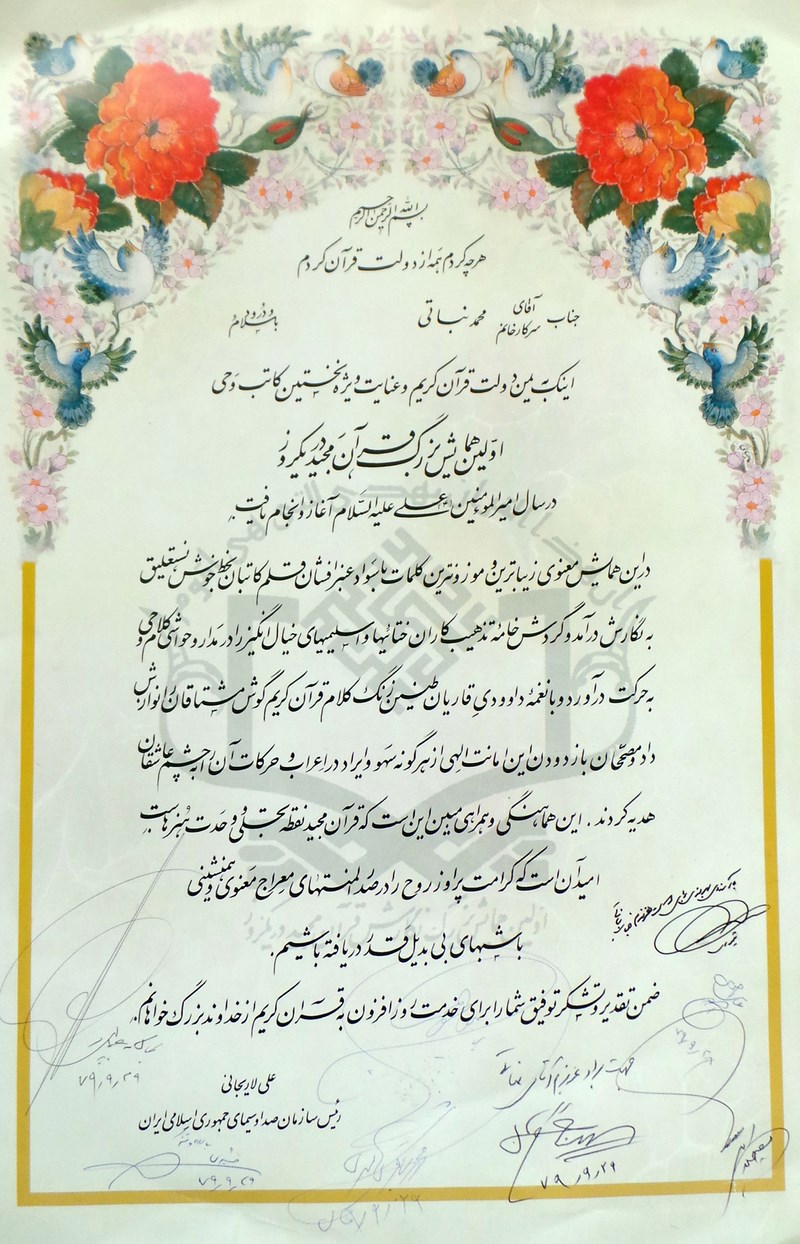 بسم الله الرحمن الرحیم
هرچه کردم همه از دولت قرآن کردم
جناب آقای سرکار خانم محمد نباتی
با سلام و درود
اینک به یمن دولت قرآن کریم و عنایت ویژه نخستین کاتب وحی
اولین همایش بزرگ قرآن مجید در یکروز
در سال امیرالمؤمنین علی علیه السلام آغاز و انجام یافت.
در این همایش معنوی زیباترین و موزون‌ترین کلمات با سواد عنبر افشان قلم کاتبان بخط خوش نستعلیق
به نگارش درآمد و گردش خامهٔ تذهیب کاران ختائیها و اسلیمیهای خیال انگیز را در مدار و حواشی کلام وحی
به حرکت درآورد و با نغمهٔ داوودی قاریان طنین زنگ کلام قرآن کریم گوش مشتاقان را نوازش
داد و مصححان با زدودن این امانت الهی از هرگونه سهو و ایراد در اعراب و حرکات آن را به چشم عاشقان
هدیه کردند. این هماهنگی و همراهی مبین این است که قرآن مجید نقطه تجلی و وحدت هنرهاست
امید آن است که کرامت پرواز روح را در صدر المنتهای معراج معنوی و همنشینی
با شبهای بی بدیل قدر دریافته باشیم.
ضمن تقدیر و تشکر توفیق شما را برای خدمت روز افزون به قرآن کریم از خداوند بزرگ خواهانم.
علی لاریجانی
رئیس سازمان صدا و سیمای جمهوری اسلامی ایران
اولین همایش نگارش قرآن مجید در یکروز
۷۹٫۹٫۲۹
۷۹٫۹٫۲۹
۷۹٫۹٫۲۹